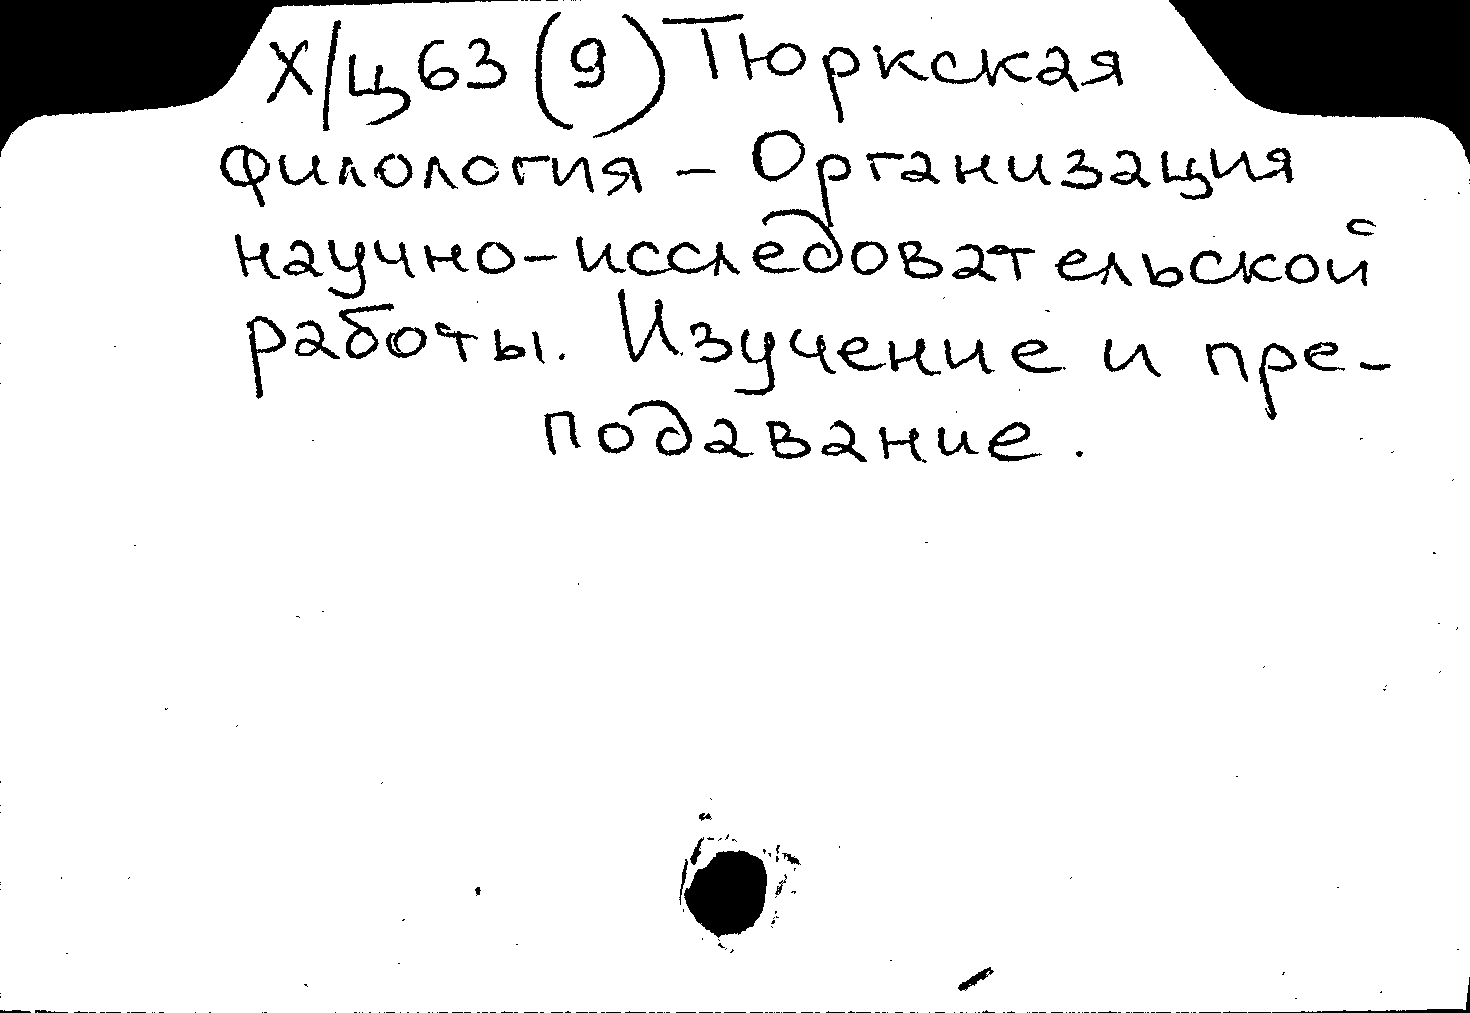 Х/Ц63(9) Тюркская
филология – Организация
научно-исследовательской
работы. Изучение и пре-
подавание.